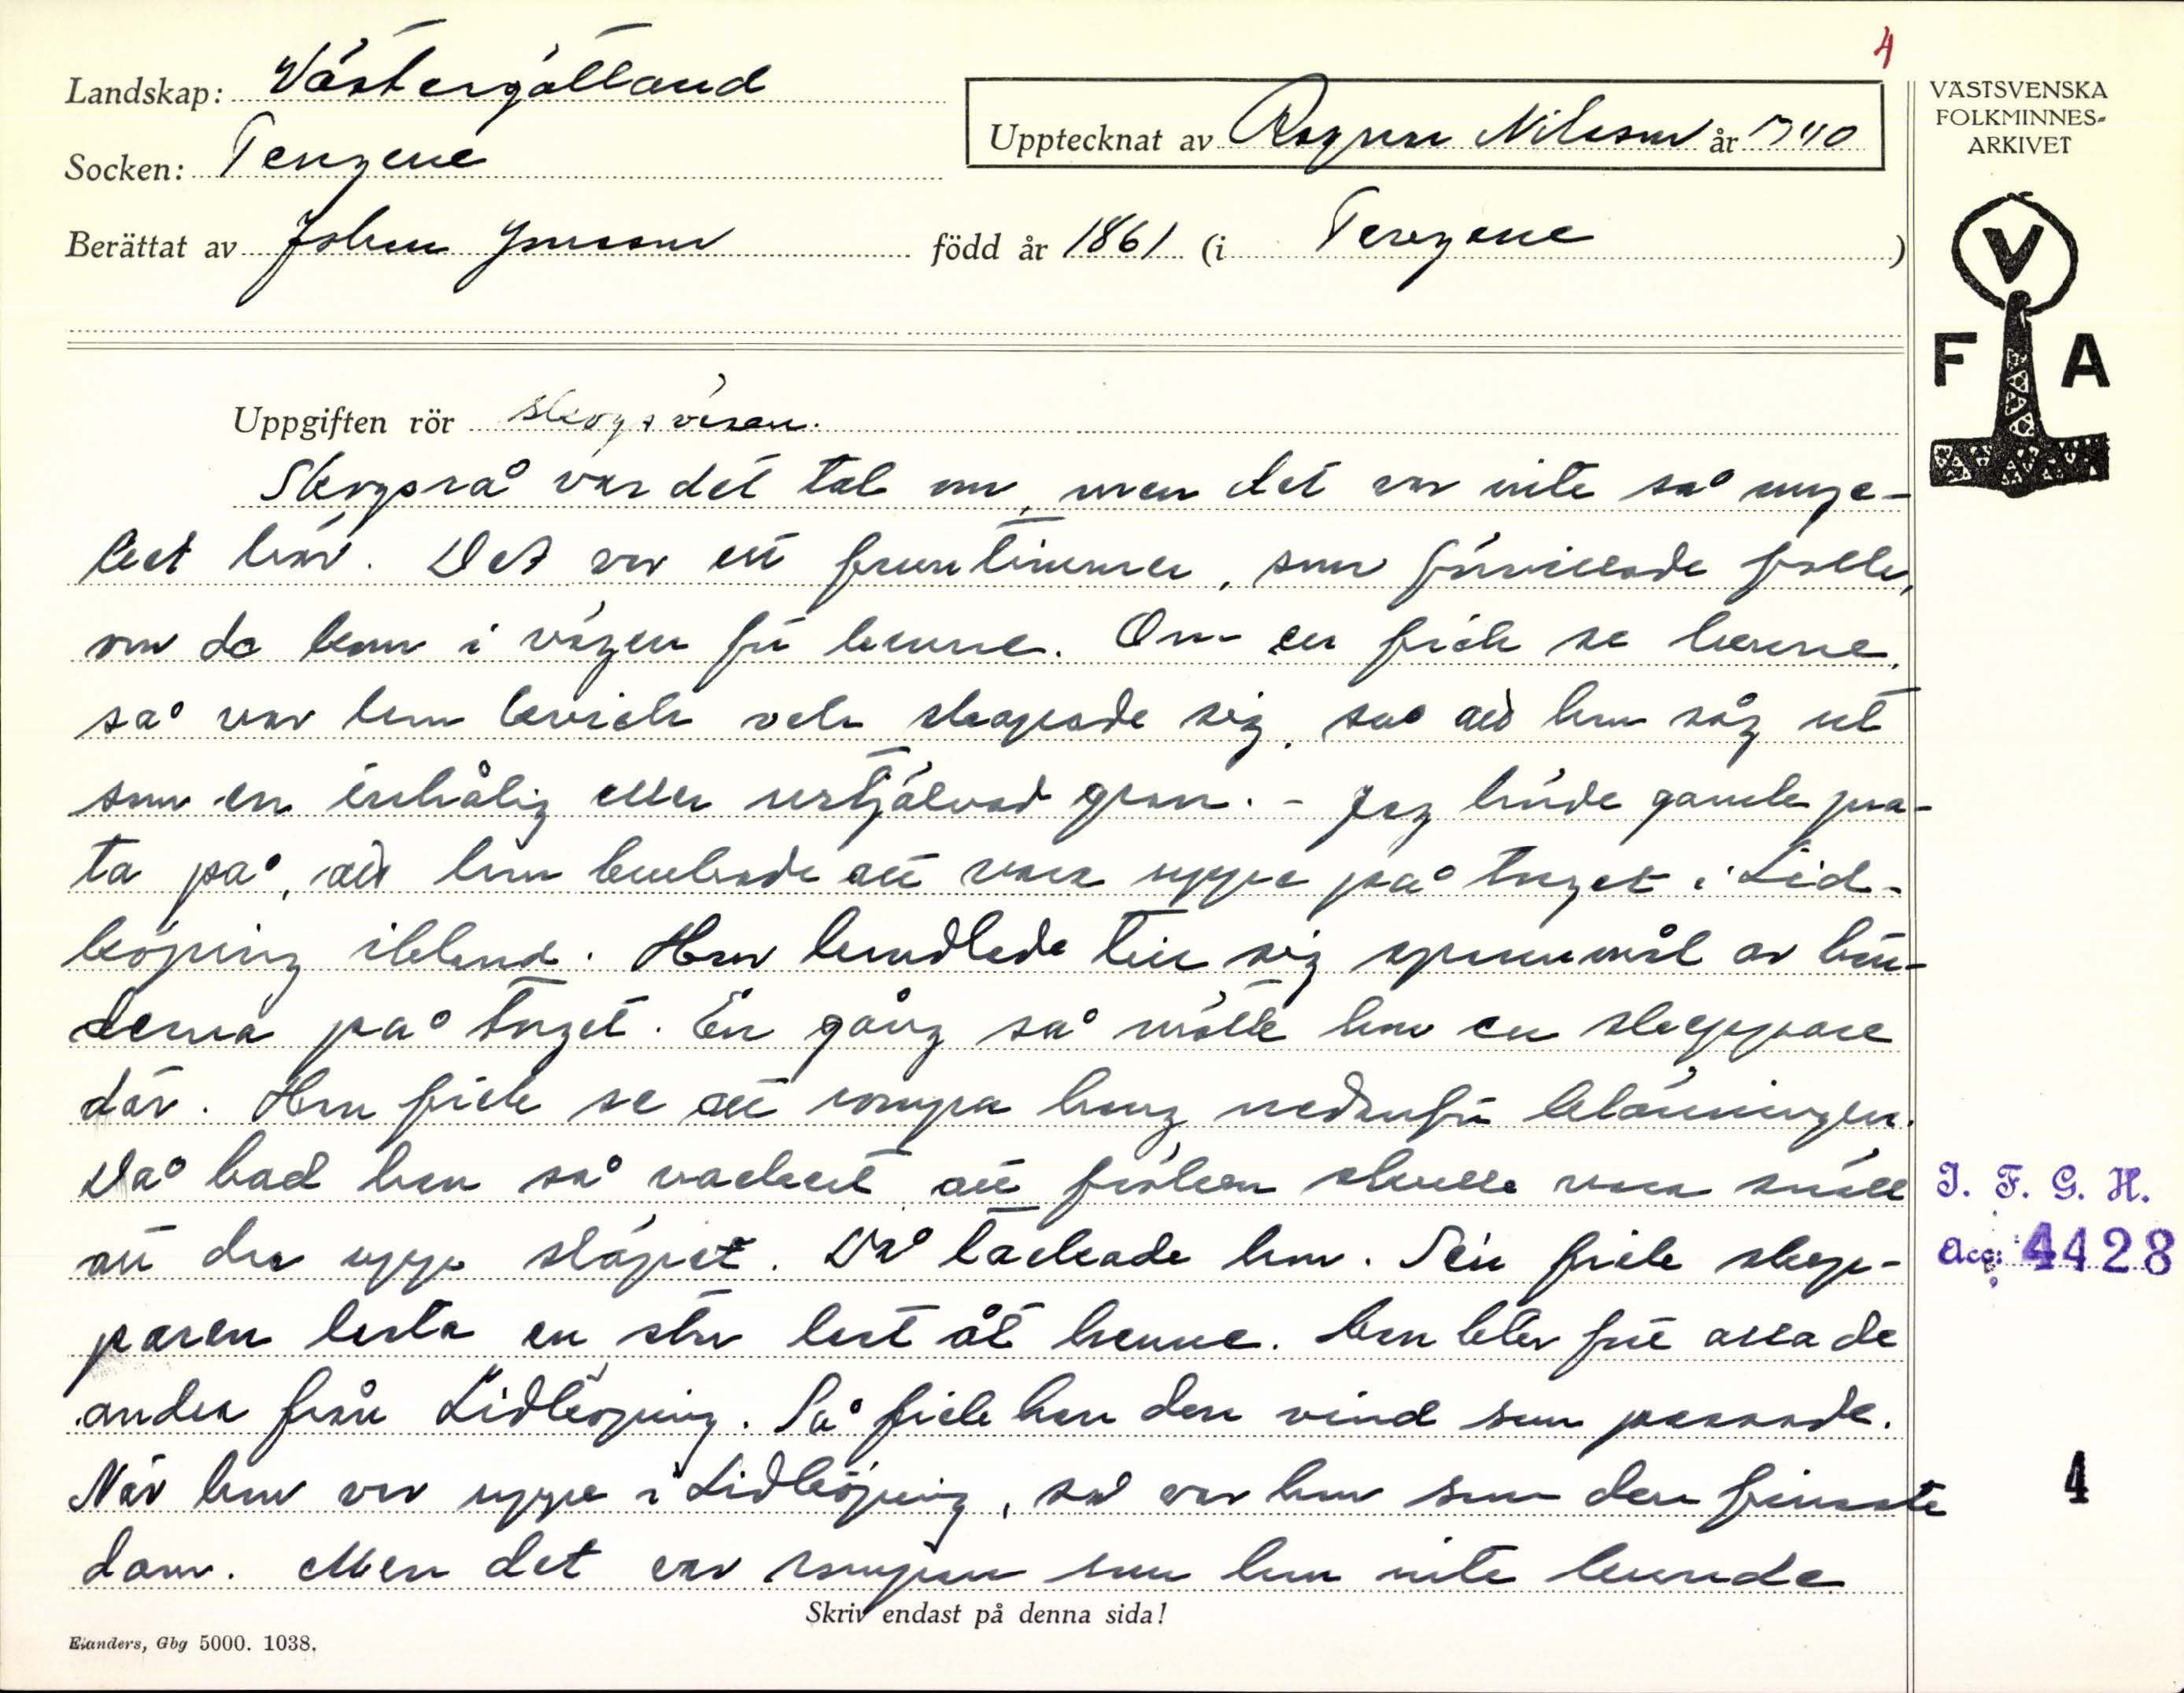 4
Landskap: Västergötland
Socken: Tengene
Upptecknat av Ragnar Nilsson år 1940
Berättat av Johan Jonsson född år 1861 (i Tengene)
VÄSTSVENSKA
FOLKMINNES-
ARKIVET
V
F A
Uppgiften rör skogsväsen.
Skogsrå var det tal om, men det var inte så myc-
ket här. Det var ett fruntimmer, som förvillade folk,
om de kom i vägen för henne. Om en fick se henne,
så var hon bevisli och skapade sig, så att hon såg ut
som en ihålig eller urstjälvad gran. - Jag hörde gamla pra-
ta på, att hon brukade att vara uppe på torget i Lid-
köping ibland. Hon handlade till sig spannmål av bön-
derna på torget. En gång så mötte hon en skeppare
där. Han fick se att rompa hang nedanför klänningen.
Då bad han så vackert att fröken skulle vara snäll
att dra upp släpet. Då tackade hon. Sen fick skep-
paren lasta en stor last åt henne. Han blev före alla de
andra från Lidköping. Så fick han den vind som passade.
När hon var uppe i Lidköping, så var hon som den finaste
dam. Men det var rompan som hon inte kunde
Skriv endast på denna sida!
Elanders, Gbg 5000. 1038.
I. F. G. H.
Acc: 4428
4